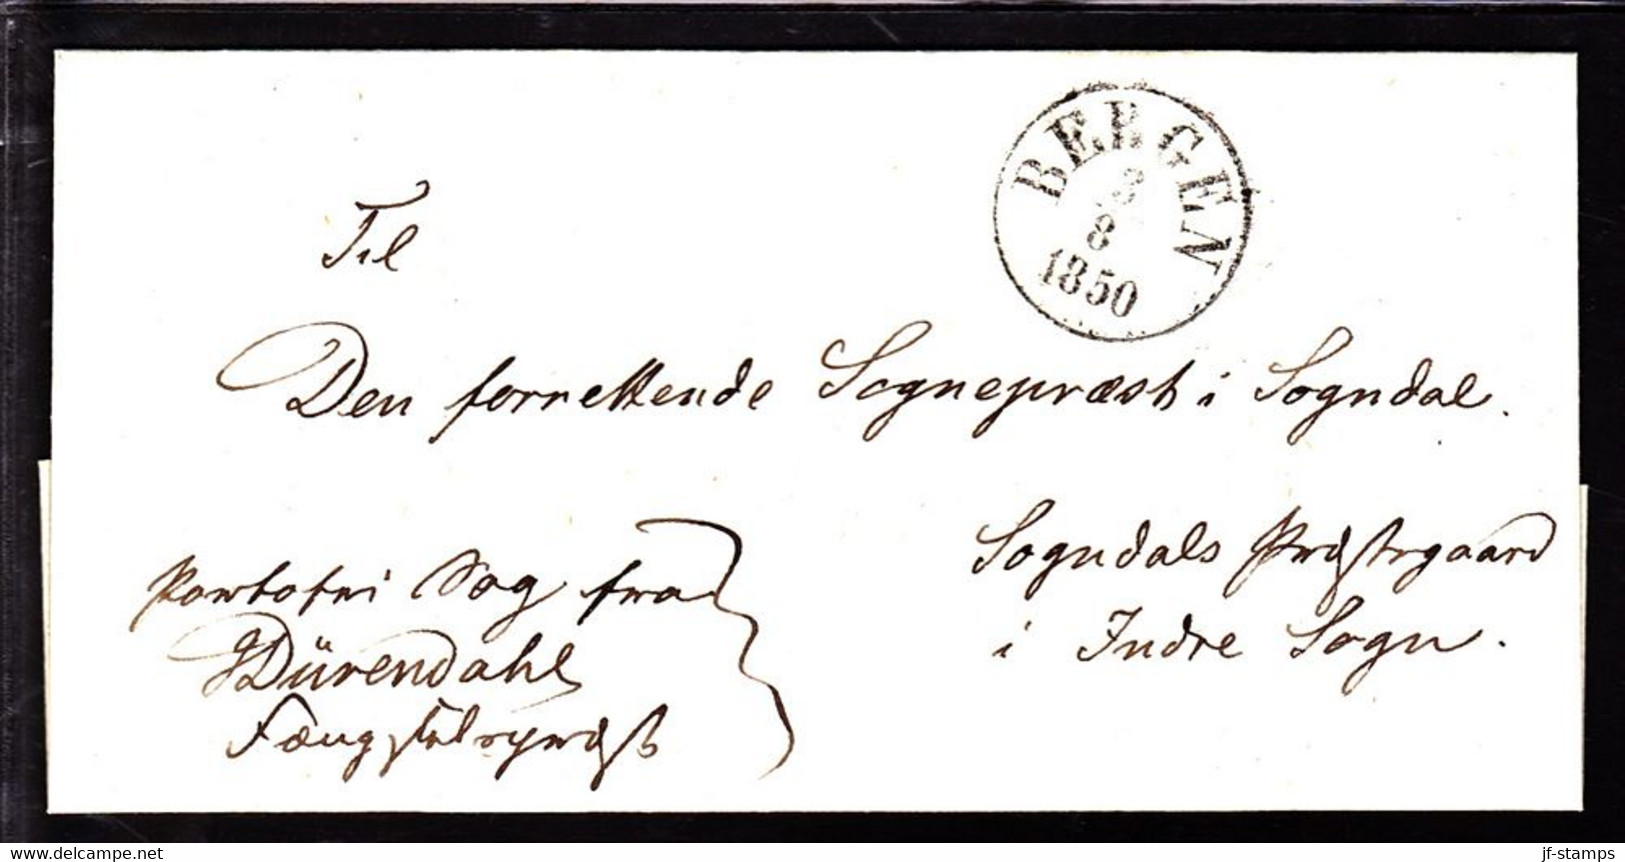 BERGEN
3
8
1850
Til
Den forrettende Sognepræst i Sogndal.
Sogndals Præstegaard
i Indre Sogn.
Portofri Sag fra
Dürendahl
Fængselspræst
www.delcampe.net
jf-stamps